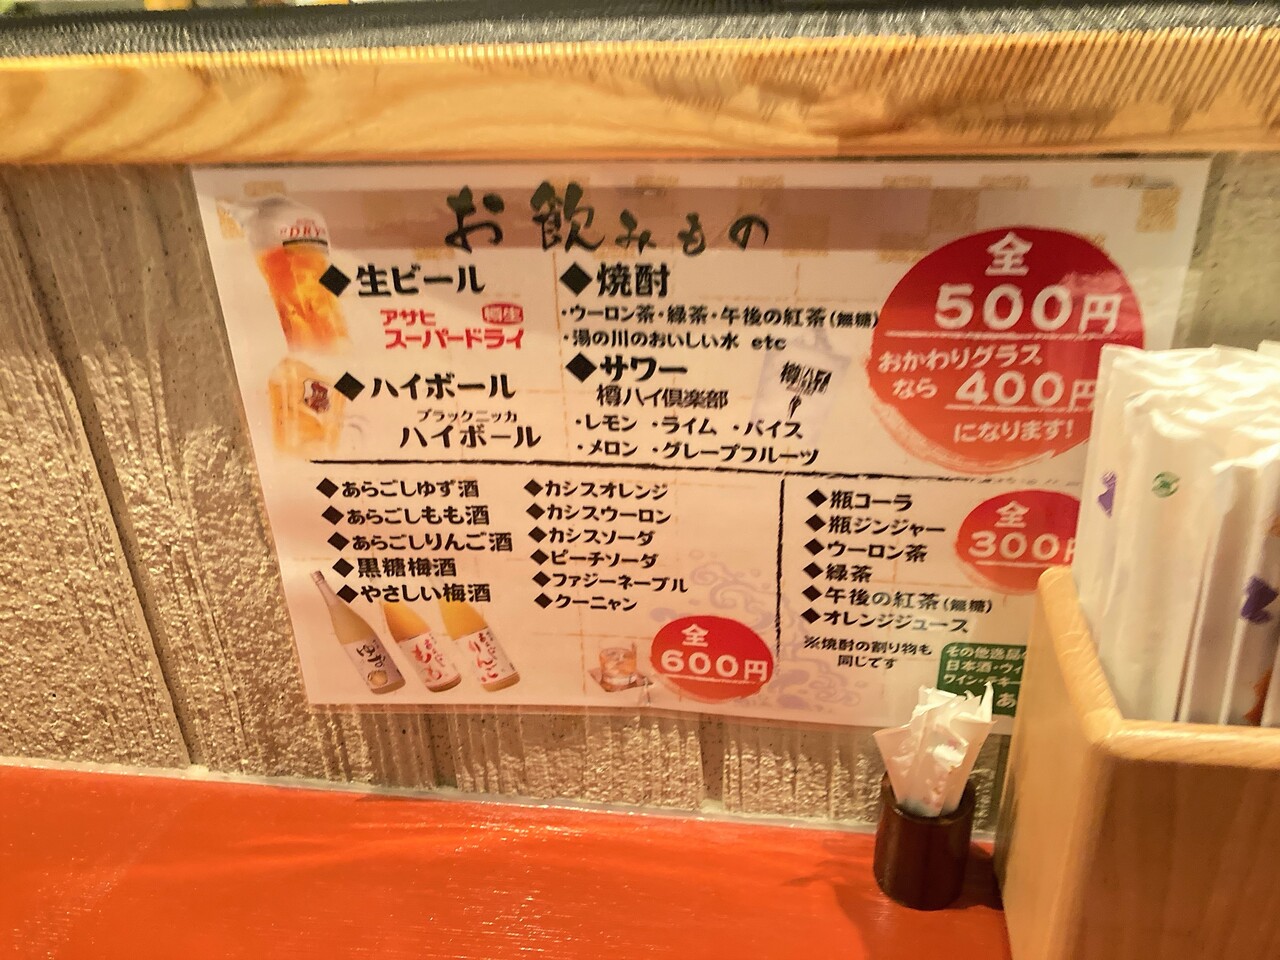 お飲みもの
◆生ビール
アサヒ 樽生
スーパードライ
◆ハイボール
ブラックニッカ
ハイボール
◆焼酎
・ウーロン茶・緑茶・午後の紅茶(無糖)
・湯の川のおいしい水 etc
◆サワー
樽ハイ倶楽部
・レモン ・ライム ・バイス
・メロン ・グレープフルーツ
全
500円
おかわりグラス
なら 400円
になります!
◆あらごしゆず酒
◆あらごしもも酒
◆あらごしりんご酒
◆黒糖梅酒
◆やさしい梅酒
◆カシスオレンジ
◆カシスウーロン
◆カシスソーダ
◆ピーチソーダ
◆ファジーネーブル
◆クーニャン
全
600円
◆瓶コーラ
◆瓶ジンジャー
◆ウーロン茶
◆緑茶
◆午後の紅茶(無糖)
◆オレンジジュース
※焼酎の割り物も
同じです
全
300円
その他逸品
日本酒・ウィ
ワイン・テキー
あ
DRY
ゆず
もも
りんご